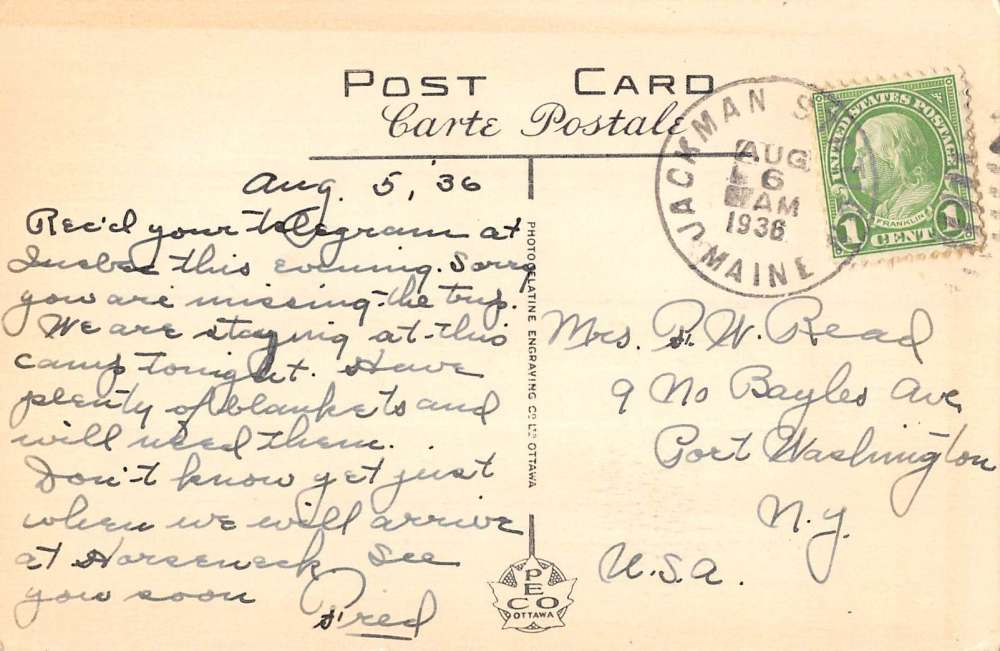 POST CARD
Carte Postale
Aug. 5, '36
Rec'd your telegram at
Quebec this evening. Sorry
you are missing the trip.
We are staying at this
camp tonight. Have
plenty of blankets and
will need them.
Don't know yet just
when we will arrive
at Horseneck See
you soon
Fred
PHOTOGELATINE ENGRAVING CO. LTD. OTTAWA
PECO
OTTAWA
JACKMAN
AUG
6
AM
1936
MAINE
UNITED STATES POSTAGE
FRANKLIN
1 CENT 1
Mrs. F. W. Read
9 No Bayles Ave.
Port Washington
N.Y.
U.S.A.